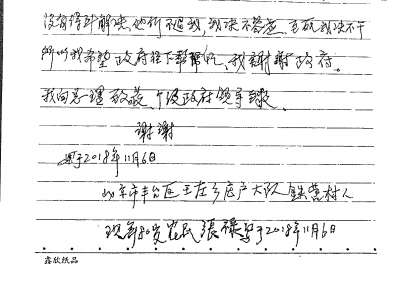 没有得到解决,他们不追我,我决不答应,我决不干
所以我希望政府下帮帮忙、我谢谢政府。
我向总理敬礼、个级政府领导
谢谢
写于2018年11月6日
北京市丰台区王左乡庄户大队营村人
现年80岁农民張禄写于2018年11月6日
纸品